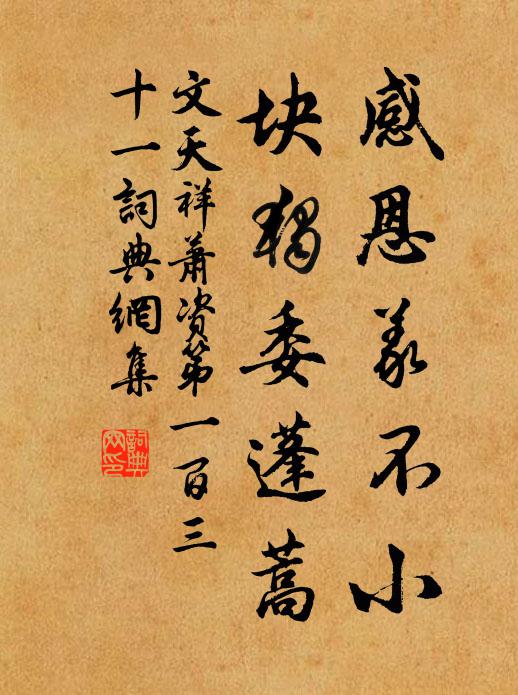 感恩義不小
块獨委蓬蒿
文天祥蕭资第一百三
十一詞典網集
詞典
网印